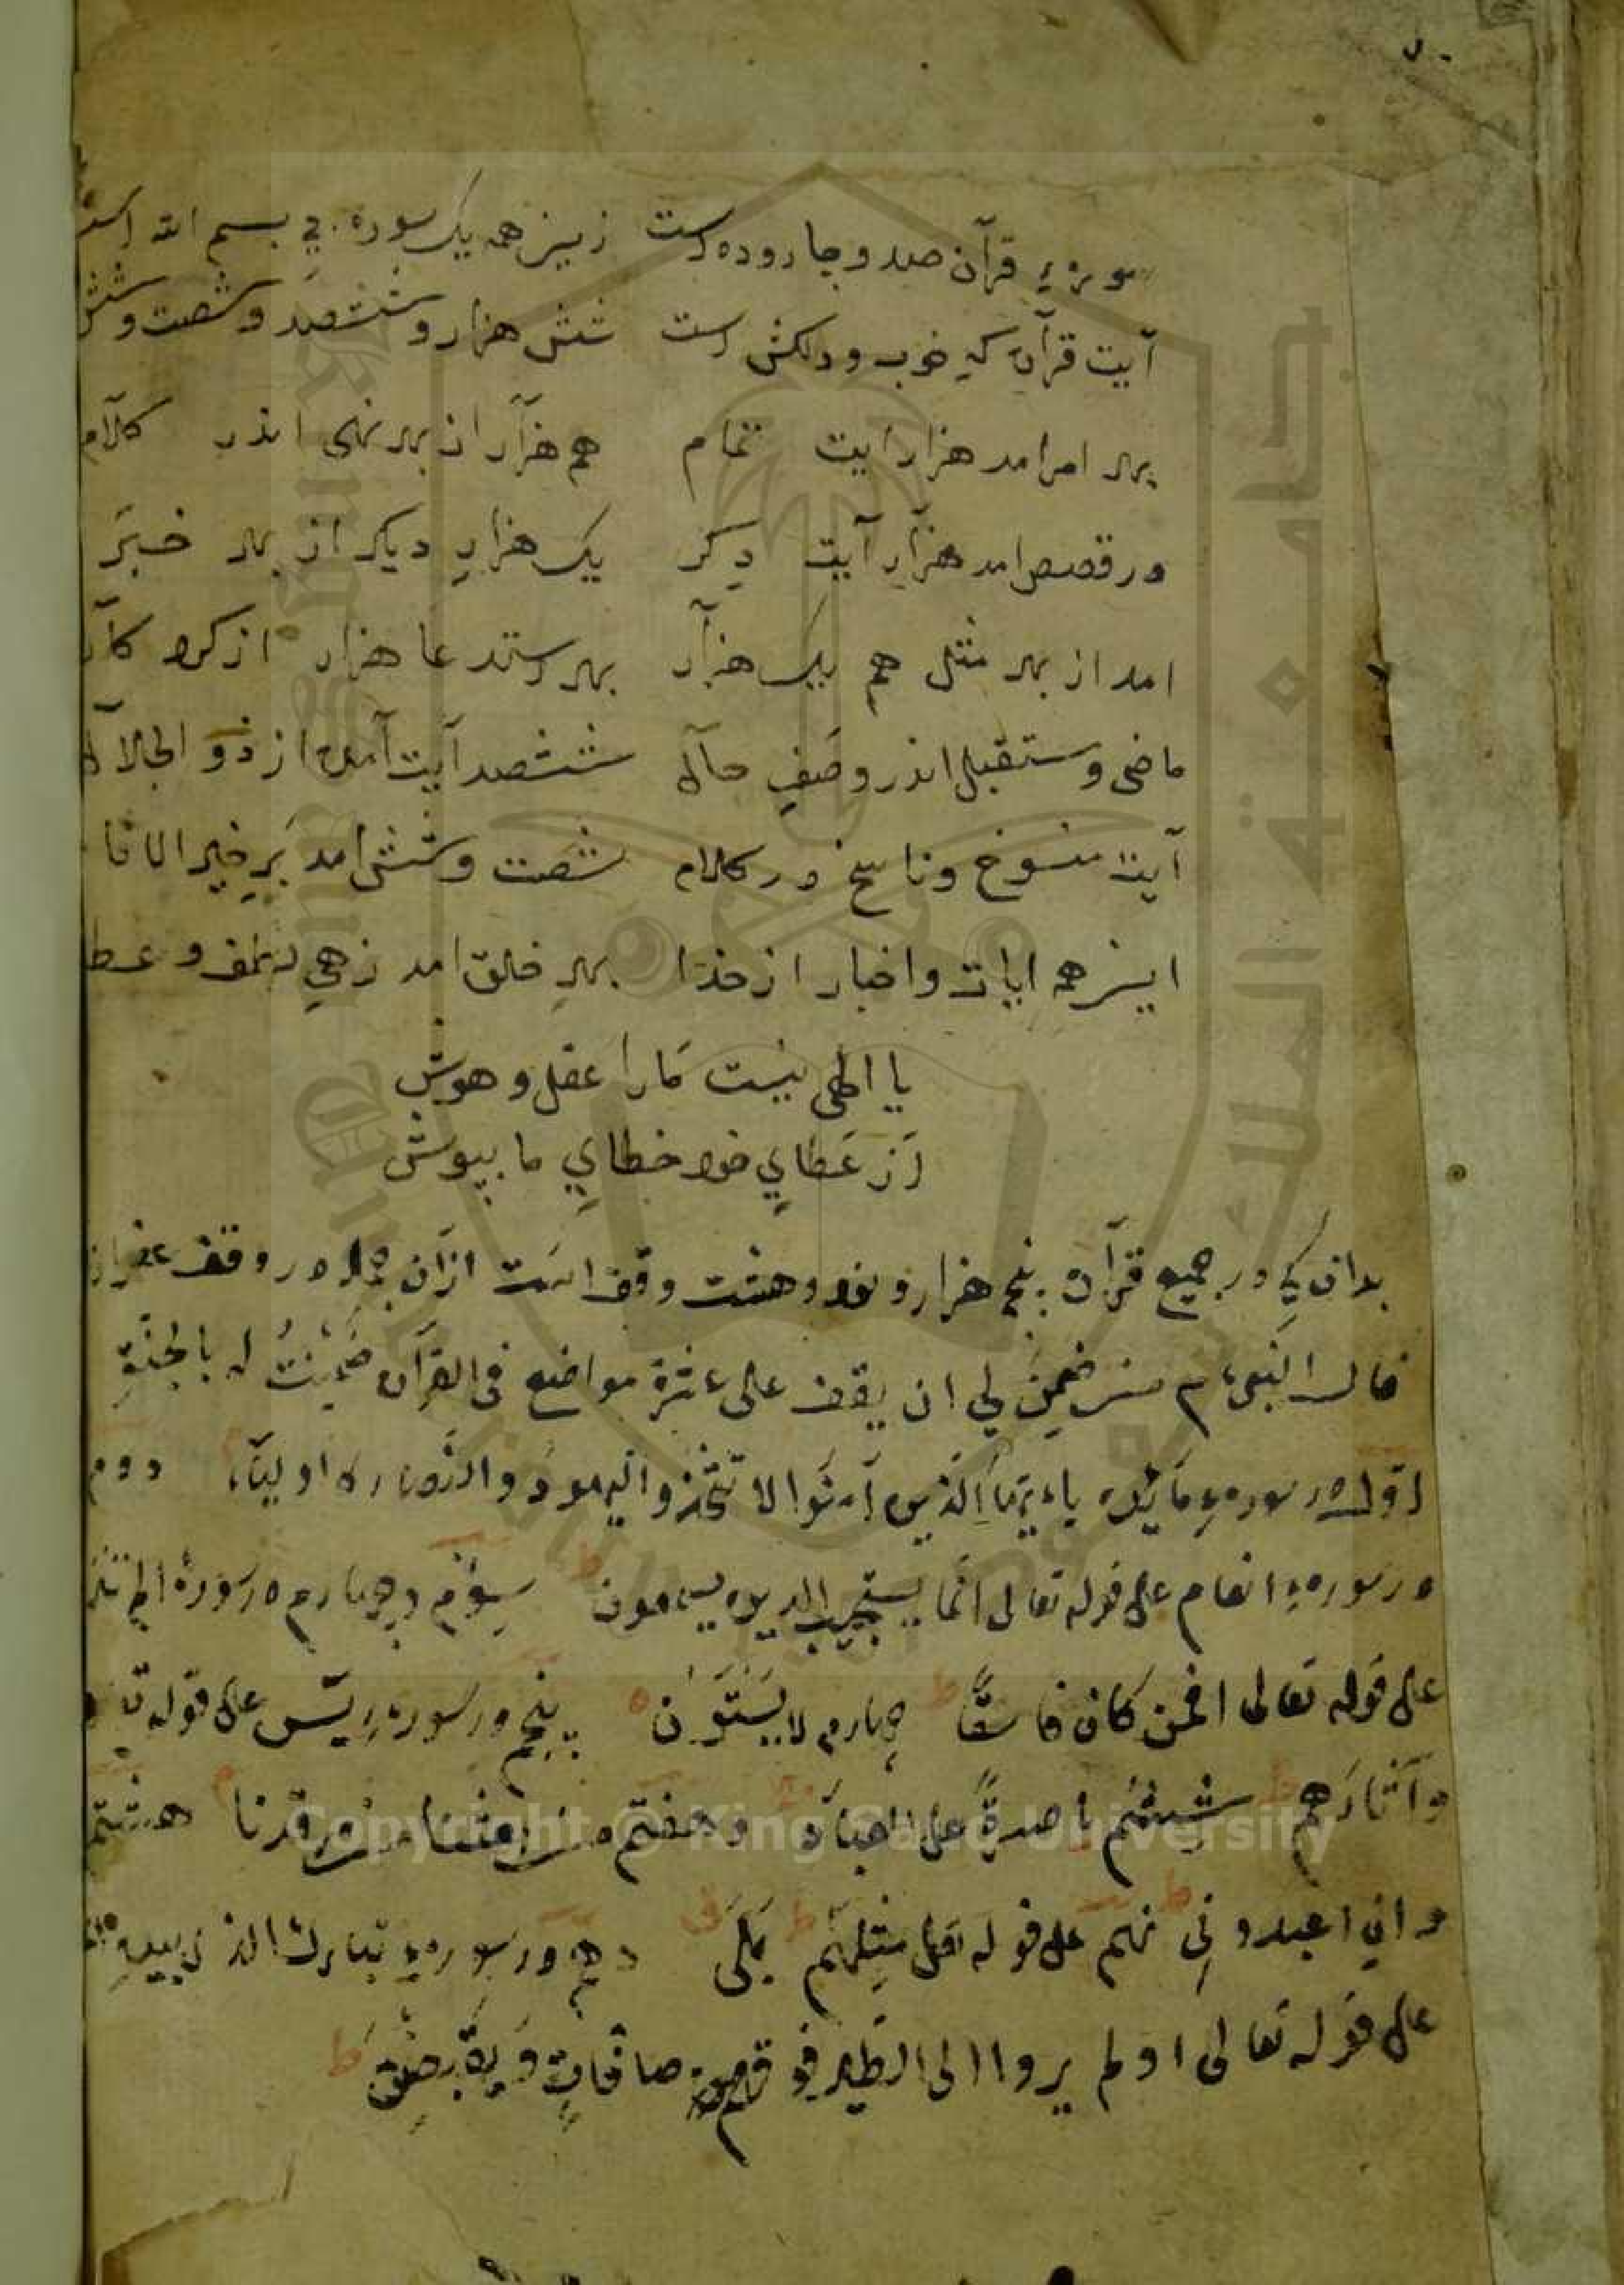 سورهء قرآن صد و چارده است زین همه یک سوره بی بسم الله است
آیت قرآن که خوب و دلکش است شش هزار و ششصد و شصت و شش
بهر امر امد هزار ایت تمام هم هزار از بهر نهی اندر کلام
در قصص امد هزار آیت دکر یک هزار دیکر از بهر خبر
امد از بهر مثل هم یک هزار بهر استدعا هزار از کرد کار
ماضی و ستقبل اندر وصف حال ششصد آیت آمد از ذو الجلال
آیت منسوخ و ناسخ در کلام شصت و شش امد بر خیر الانا
اینهمه ایات و اخبار از خدا بهر خلق امد زهی لطف و عطا
یا الهی نیست ما را عقل و هوش
از عطای خود خطای ما بپوش
بدان که در جمیع قرآن پنج هزار و نود و هشت وقف است از ان جمله در وقف غفران
قال النبی ءم من ضمن لی ان یقف علی عشرة مواضع فی القرآن ضمنت له بالجنة
اول در سورهء مائده یاءیها الذین آمنوا لا تتخذوا الیهود والنصاری اولیاء دوم
در سورهء انعام علی قوله تعالی انما یستجیب الذین یسمعون سیوم و چهارم در سورهٔ الم تنز
علی قوله تعالی افمن کان فاسقا چهارم لا یستون پنجم در سورهء یس علی قوله ت
وآثارهم ششم یا حسرة علی العباد و هفتم من بعثنا من مرقدنا هشتم
وان اعبدونی نهم علی قوله مثلهم بلی دهم در سورهء تبارک الذی بیده
علی قوله تعالی اولم یروا الی الطیر فوقهم صافات ویقبضن
Copyright © King Saud University